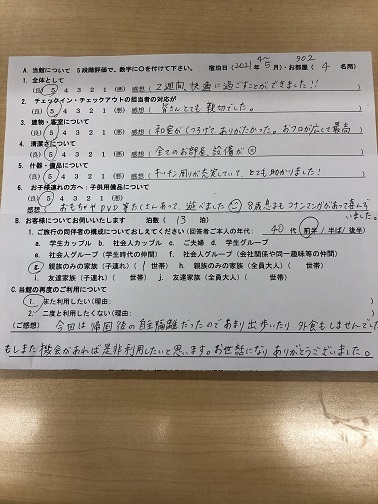 A. 当館について 5段階評価で、数字に○を付けて下さい。 宿泊日(2021年4~5月)・お部屋(902 4名用)
1. 全体として
(良) 5 4 3 2 1 (悪) 感想(2週間、快適に過ごすことができました!!)
2. チェックイン・チェックアウトの担当者の対応が
(良) 5 4 3 2 1 (悪) 感想(皆さんとても親切でした。)
3. 建物・客室について
(良) 5 4 3 2 1 (悪) 感想(和室がくつろげてありがたかった。お風呂が広くて最高)
4. 清潔さについて
(良) 5 4 3 2 1 (悪) 感想(全てのお部屋、設備が◎)
5. 什器・備品について
(良) 5 4 3 2 1 (悪) 感想(キッチン周りが充実していて、とても助かりました!)
6. お子様連れの方へ:子供用備品について
(良) 5 4 3 2 1 (悪)
感想(おもちゃやDVD等たくさんあって、遊べました 8歳息子もコナンマンガがあって喜んでいました。
B. お客様についてお伺いいたします 泊数(13泊)
1. ご旅行の同伴者の構成についておしえてください(回答者ご本人の年代:40代 前半/半ば/後半)
a. 学生カップル b. 社会人カップル c. ご夫婦 d. 学生グループ
e. 社会人グループ(学生時代の仲間) f. 社会人グループ(会社関係や同一趣味等の仲間)
g. 親族のみの家族(子連れ)(1世帯) h. 親族のみの家族(全員大人)( 世帯)
i. 友達家族(子連れ)( 世帯) j. 友達家族(全員大人)( 世帯)
C. 当館の再度のご利用について
1. また利用したい(理由: )
2. 二度と利用したくない(理由: )
(ご感想) 今回は帰国後の自主隔離だったのであまり出歩いたり外食もしませんでし
もしまた機会があれば是非利用したいと思います。お世話になりありがとうございました。